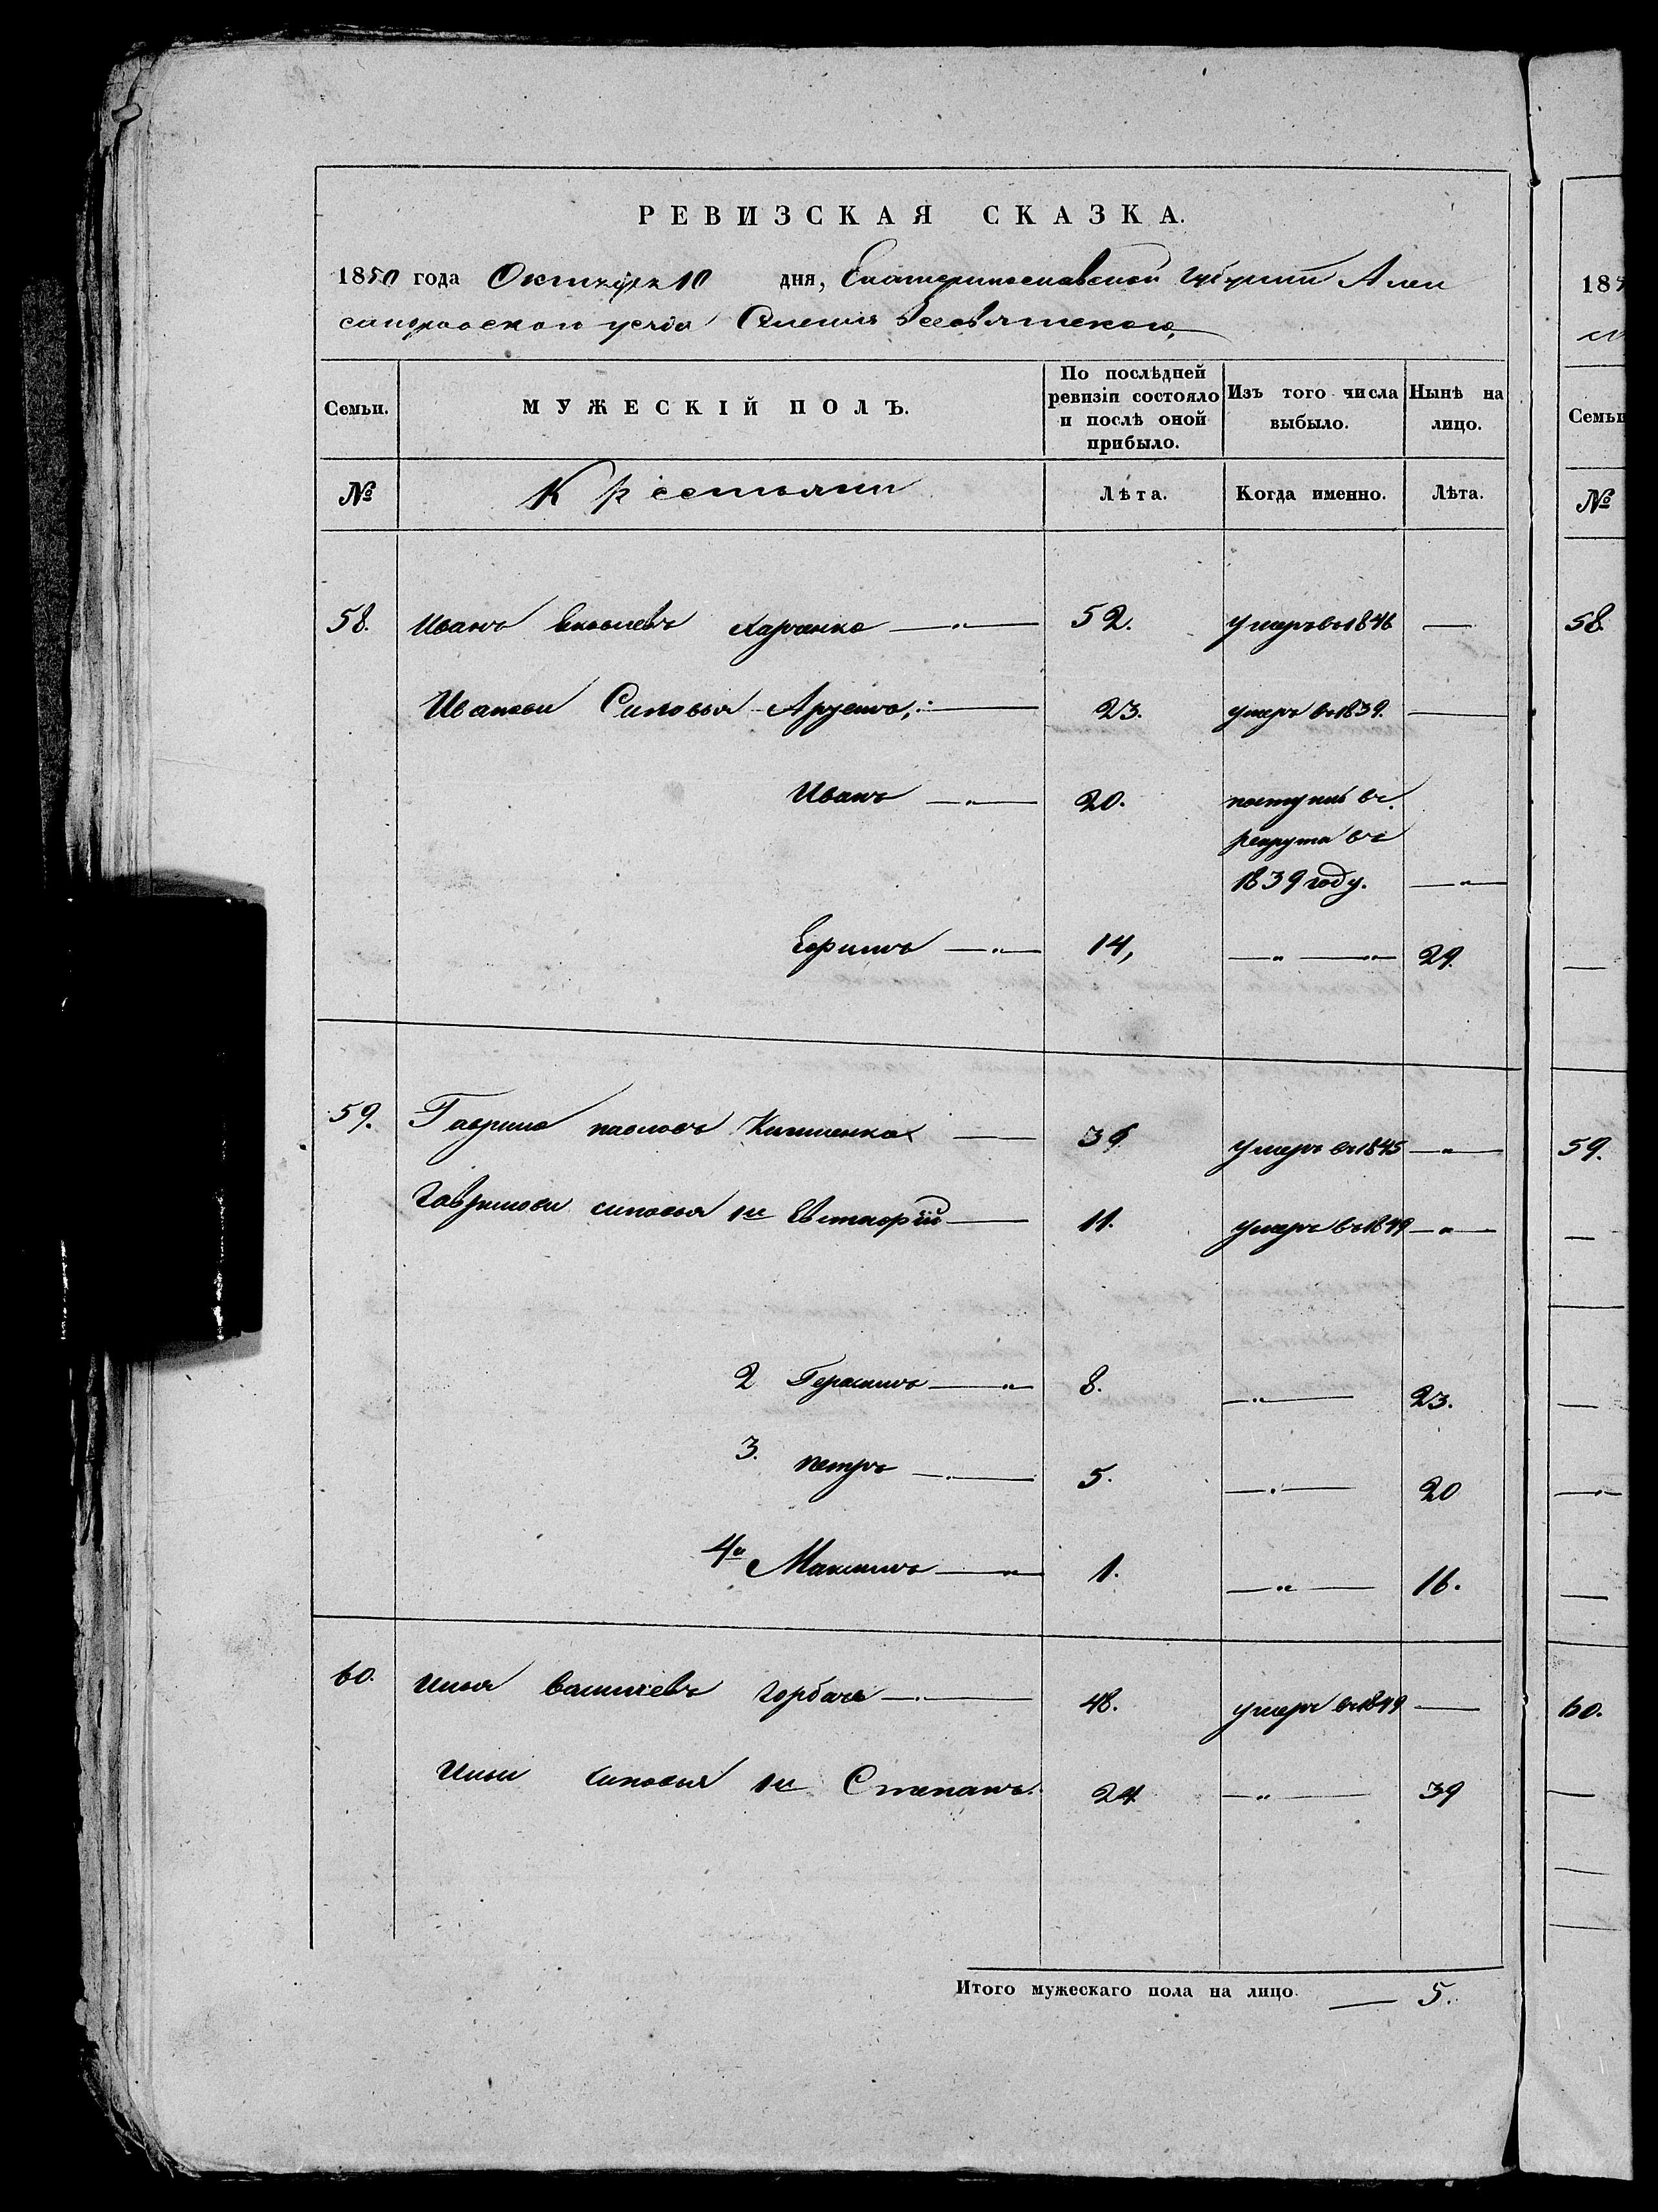 РЕВИЗСКАЯ СКАЗКА.
1850 года Октября 10 дня, Екатеринославской Губернии Алек
сандровского уезда Селения
Семьи. МУЖЕСКІЙ ПОЛЪ. По послѣдней ревизіи состояло и послѣ оной прибыло. Изъ того числа выбыло. Нынѣ на лицо.
№ Крестьяни Лѣта. Когда именно. Лѣта.
58. Иванъ Яковлевъ Харченко 52. умеръ въ 1846 —
Ивановы Сыновья 23. умеръ въ 1839. —
Иванъ 20. поступил въ
рекруты въ
1839 году. —
Ефимъ 14, — 29.
59. Гаврило павловъ 39 умеръ въ 1845 —
Гавриловы сыновья 1й Евстафій 11. умеръ въ 1849 —
2 Герасимъ 8. — 23.
3. петръ 5. — 20
4й Максимъ 1. — 16.
60. Илья васильевъ горбачъ 48. умеръ въ 1849 —
Ильи сыновья 1й Степанъ. 24 — 39
Итого мужескаго пола на лицо — 5.
185
Семьи
№
58.
59.
60.